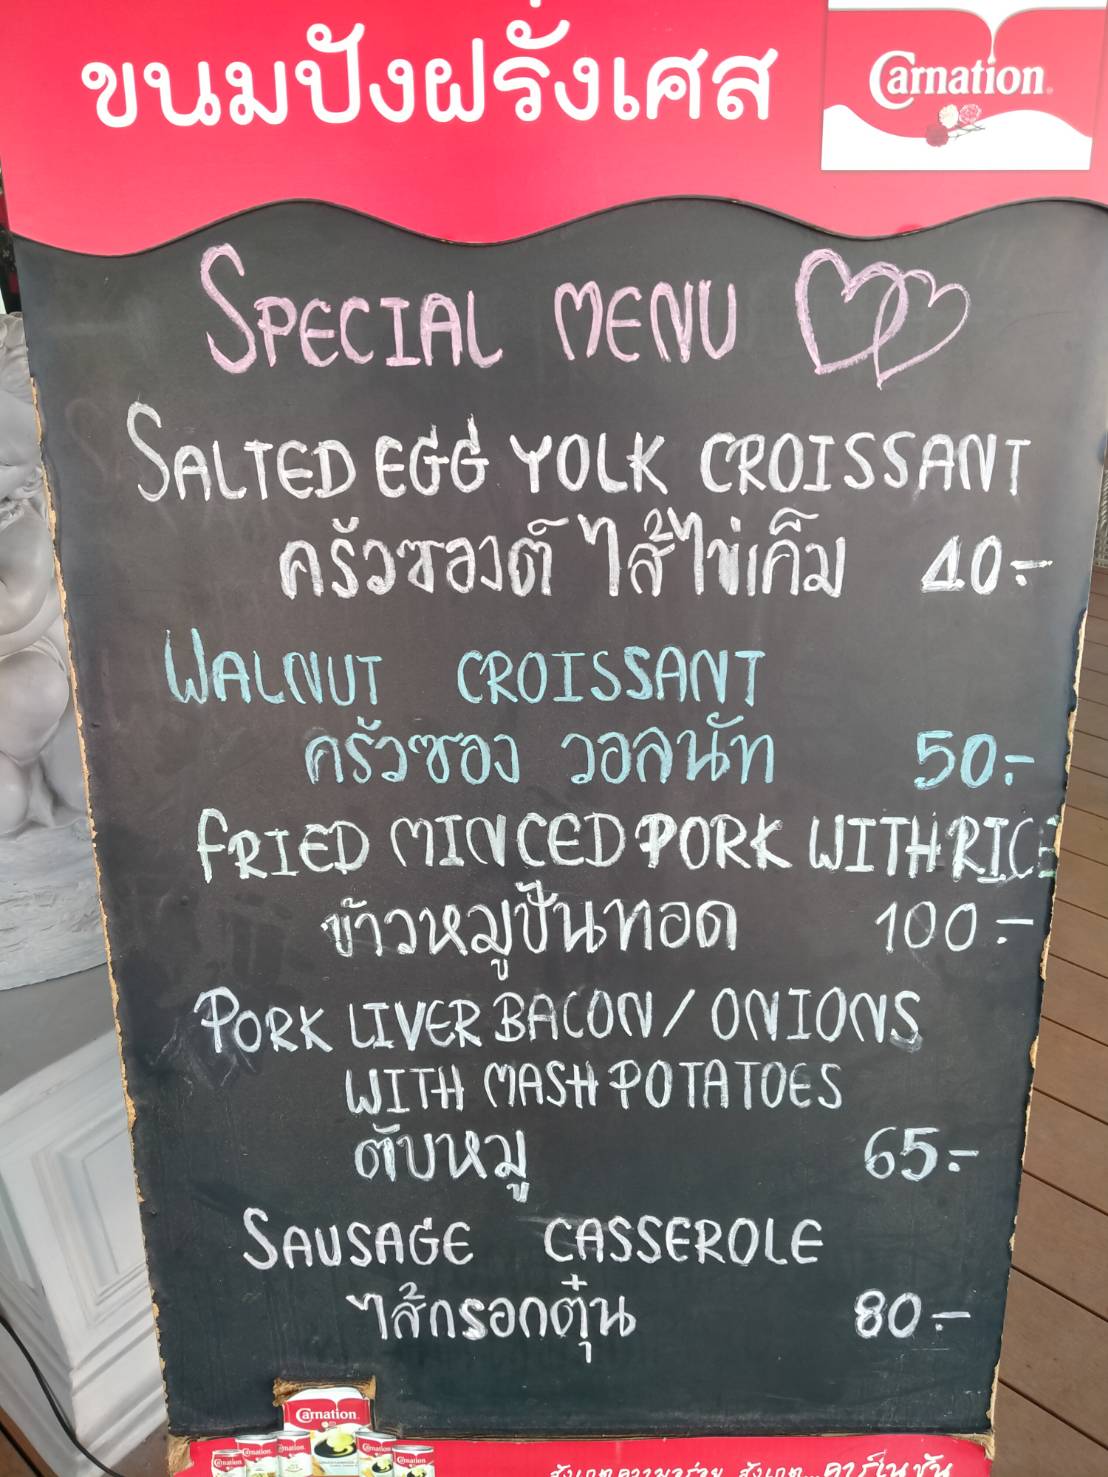 ขนมปังฝรั่งเศส
Carnation
SPECIAL MENU
SALTED EGG YOLK CROISSANT
ครัวซองต์ ไส้ไข่เค็ม 40.-
WALNUT CROISSANT
ครัวซอง วอลนัท 50.-
FRIED MINCED PORK WITH RICE
ข้าวหมูปั้นทอด 100.-
PORK LIVER BACON/ONIONS
WITH MASH POTATOES
ตับหมู 65.-
SAUSAGE CASSEROLE
ไส้กรอกตุ๋น 80.-
Carnation
Carnation
สังเกตความอร่อย สังเกต...คาร์เนชัน